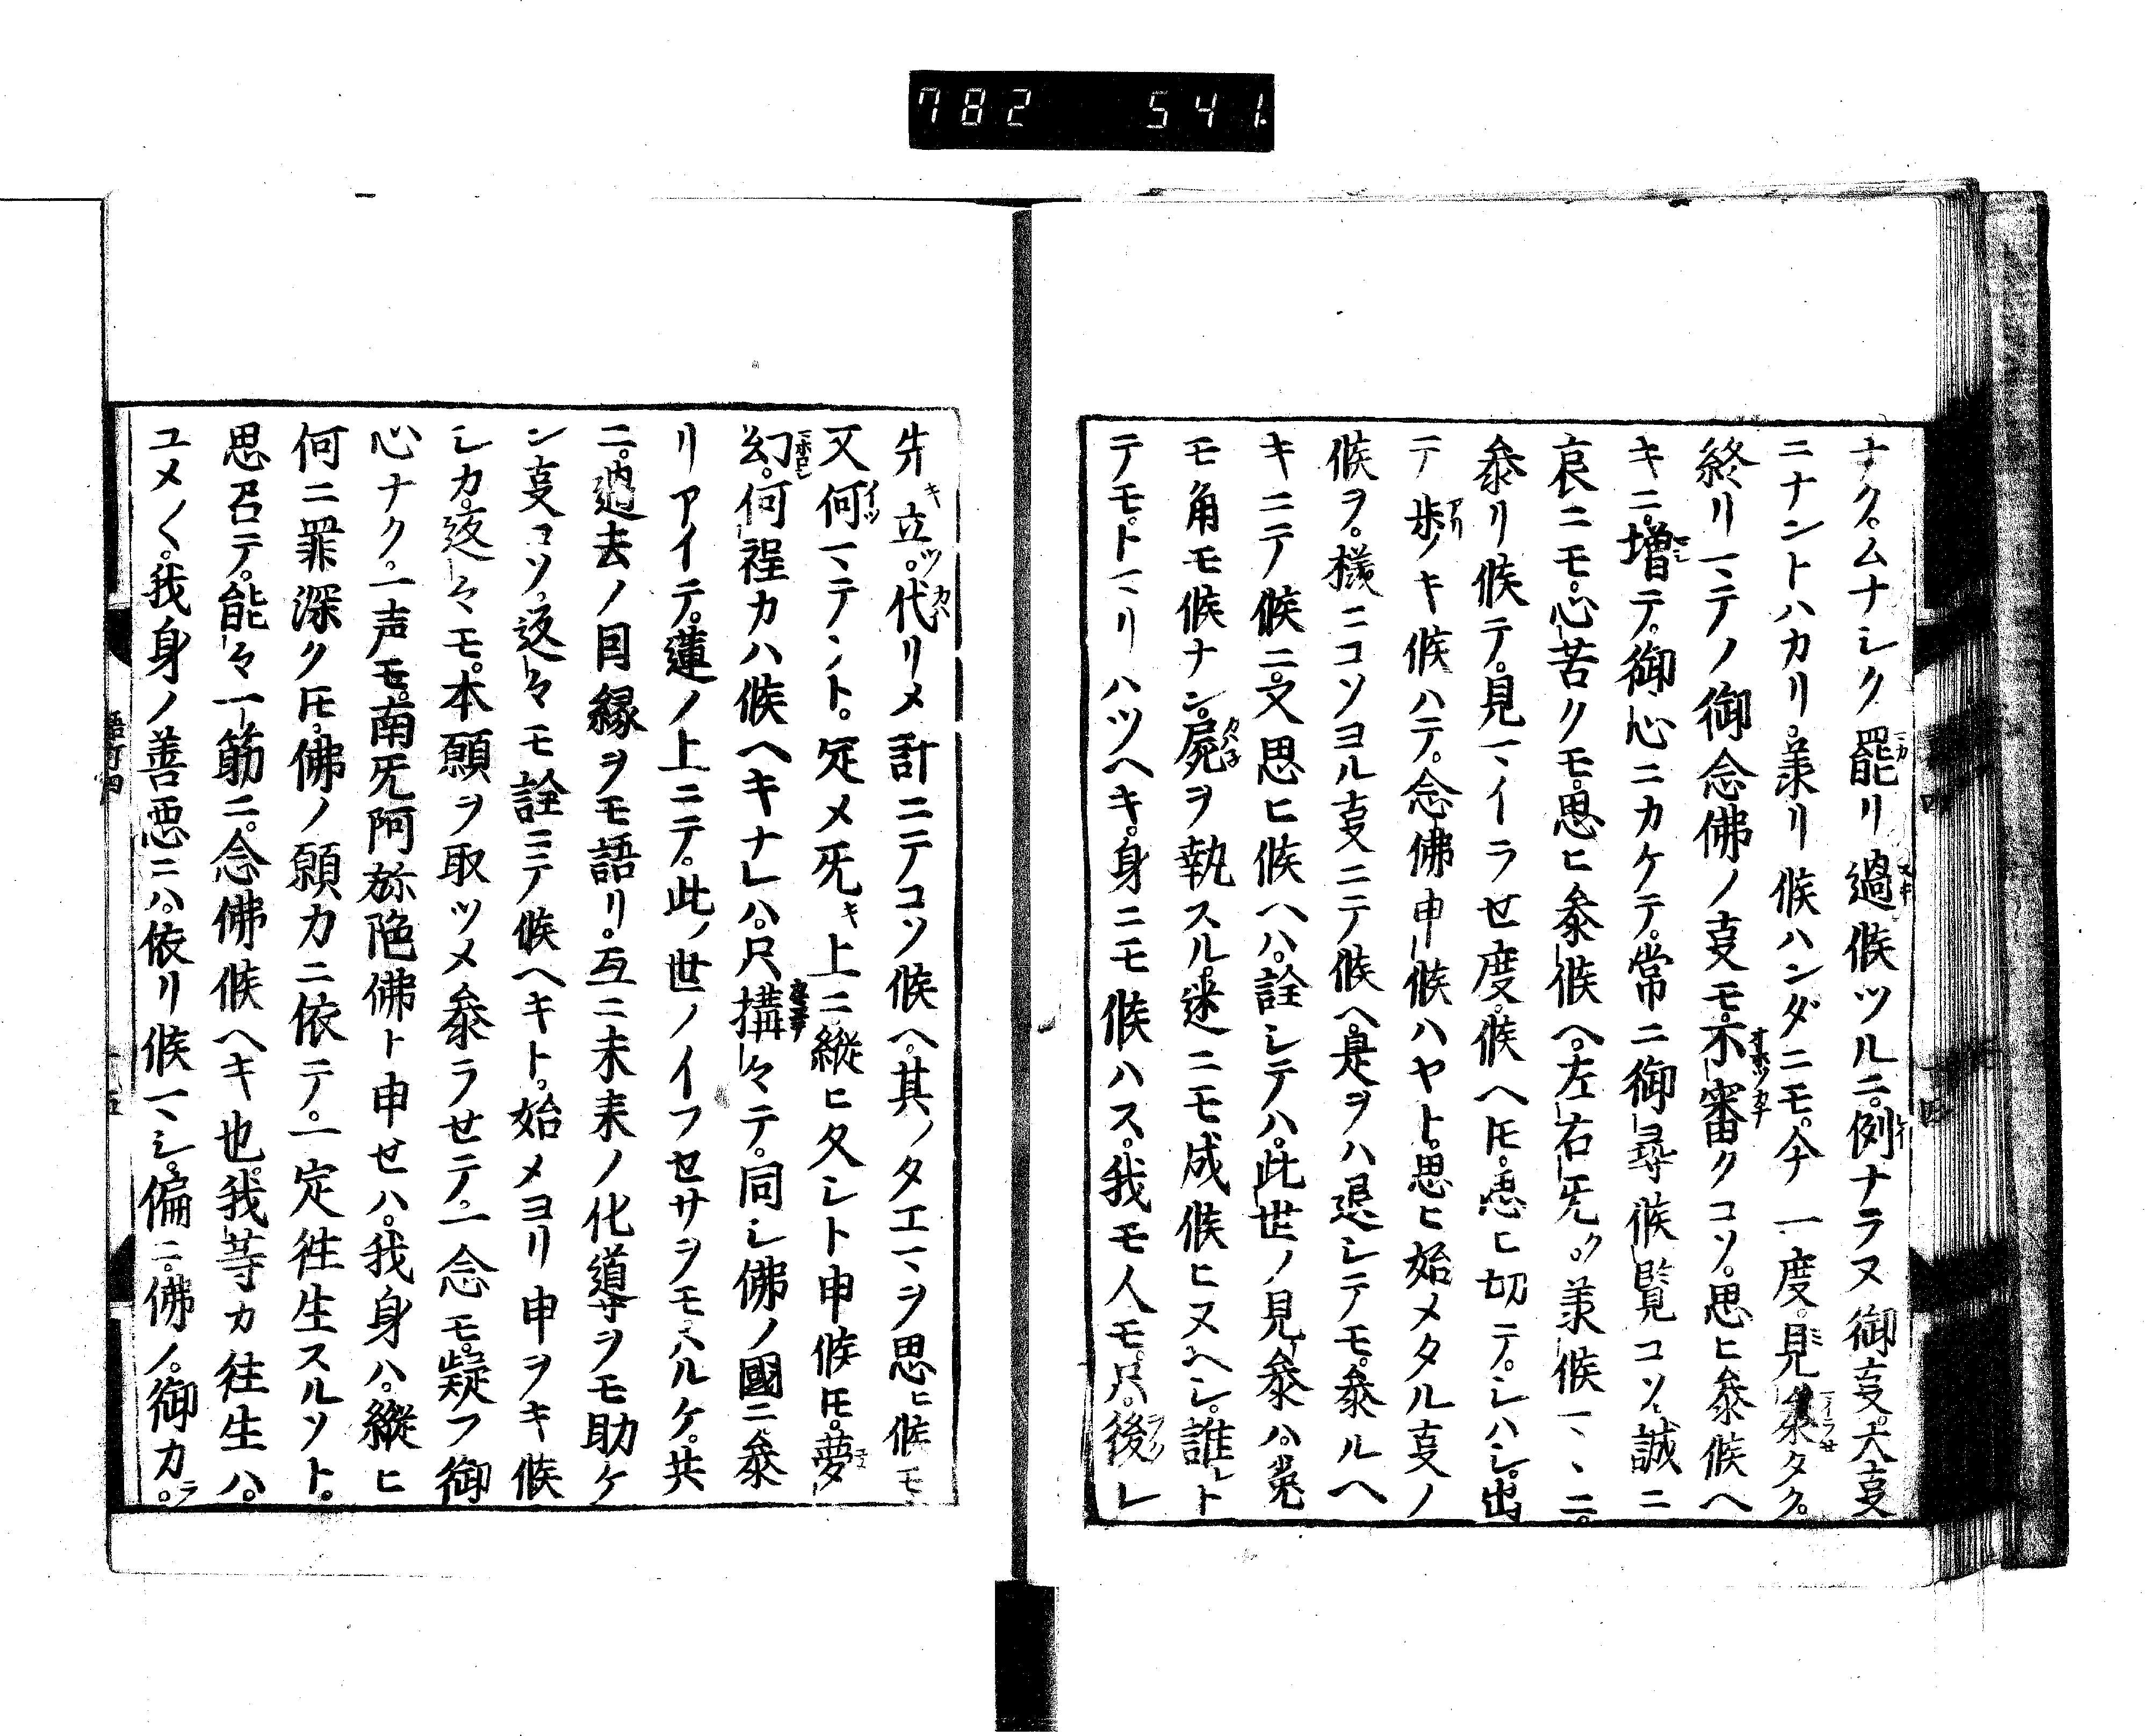 782 541.
ナク。ムナシク罷リ過候ツルニ。例ナラヌ御㕝。大㕝
ニナントハカリ。兼リ候ハンダニモ。今一度。見参タク。
終リマテノ御念佛ノ㕝モ。不審クコソ。思ヒ参候ヘ
キニ。増テ。御心ニカケテ。常ニ御尋候覧コソ。誠ニ
哀ニモ。心苦クモ。思ヒ参候ヘ。左右旡ク。兼候マヽニ。
参リ候テ。見マイラせ度。候ヘ𪜈。思ヒ切テ。シハシ。出
テ歩ノキ候ハテ。念佛申候ハヤト。思ヒ始メタル㕝ノ
候ヲ。様ニコソヨル㕝ニテ候ヘ。是ヲハ退シテモ。参ルヘ
キニテ候ニ。又思ヒ候ヘハ。詮シテハ。此世ノ見参ハ。菟
モ角モ候ナン。屍ヲ執スル。迷ニモ成候ヒヌヘシ。誰トレト
テモ。トマリハツヘキ。身ニモ候ハス。我モ人モ。只。後レ
先立ツ。代リメ計ニテコソ候ヘ。其ノタエマヲ思ヒ候モ
又何マテント。定メ旡キ上ニ縦ヒ久シト申候𪜈。夢
幻。何程カハ候ヘキナレハ。只構々テ。同シ佛ノ國ニ参
リアイテ。蓮ノ上ニテ。此ノ世ノイフセサヲモハルケ。共
ニ。過去ノ因縁ヲモ語リ。互ニ未来ノ化導ヲモ助ケ
ン㕝コソ。返々モ詮ニテ候ヘキト。始メヨリ申ヲキ候
シカ。返々モ。本願ヲ取ツメ参ラせテ。一念モ。疑フ御
心ナク。一声モ。南旡阿弥陀佛ト申せハ。我身ハ。縦ヒ
何ニ罪深ク𪜈。佛ノ願力ニ依テ。一定往生スルソト。
思召テ。能々一筋ニ。念佛候ヘキ也。我等カ往生ハ。
ユメ〱。我身ノ善悪ニハ。依リ候マシ。偏ニ。佛ノ。御力。